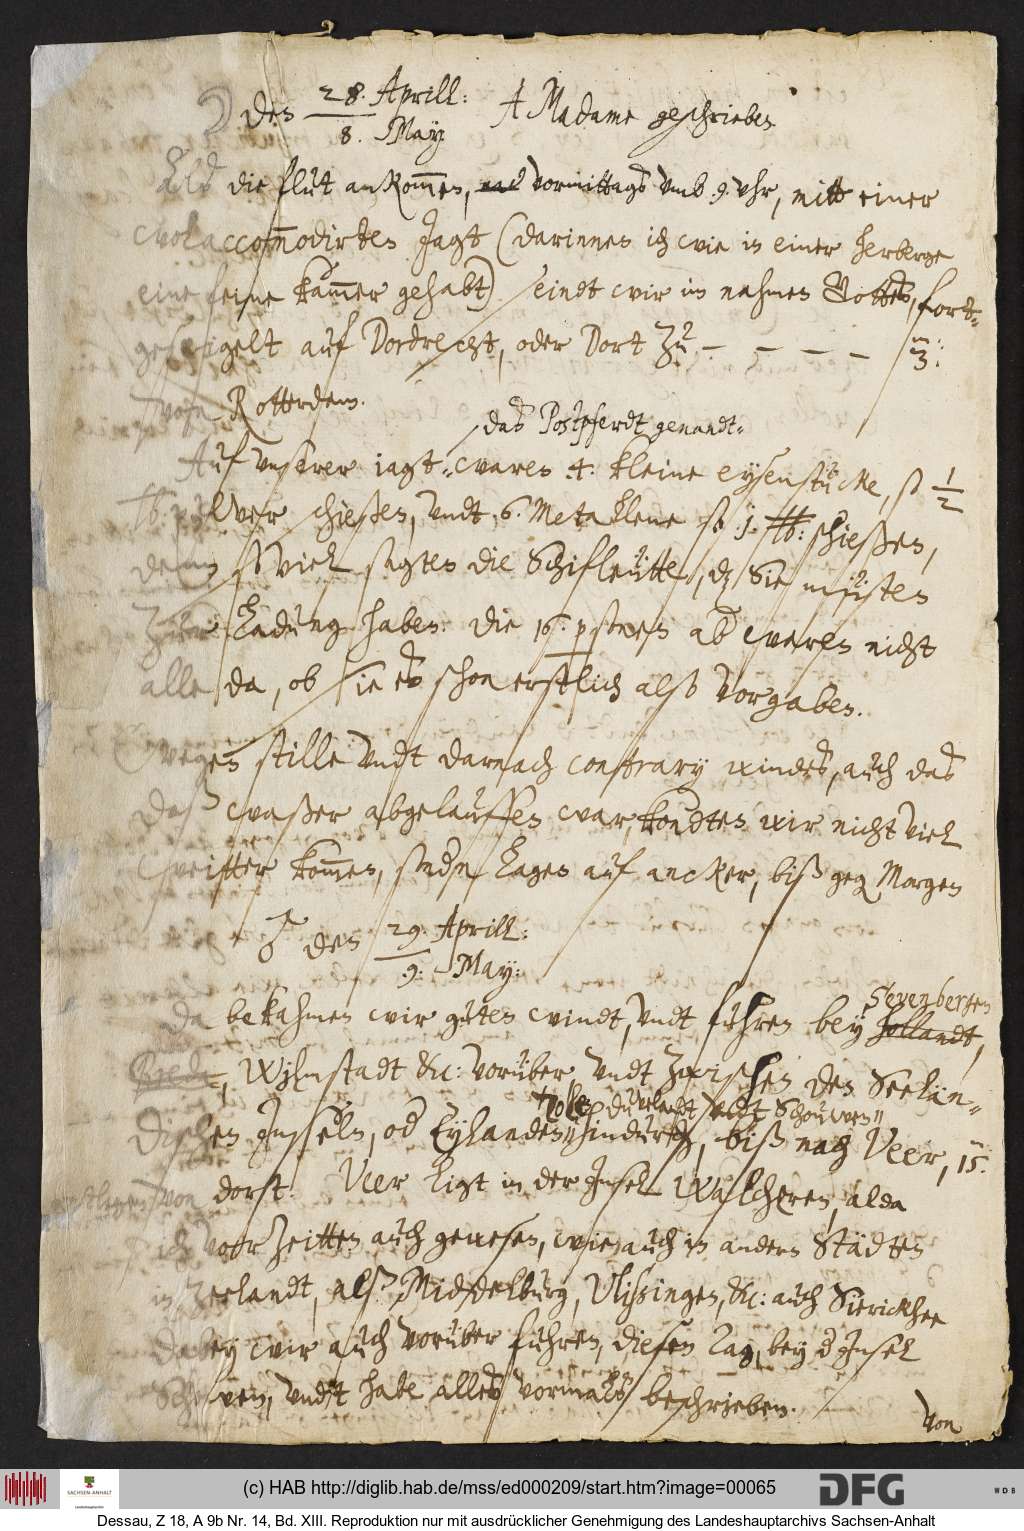 ☽ den 28. Aprill: / 8. May: A Madame geschrieben
Alß die flut ankommen, vormittags vmb 9. vhr, mitt einer
wolaccommodirten Jagt (darinnen ich wie in einer herberge
eine feine kammer gehabt) seindt wir in nahmen Gottes, fort-
gesegelt auf Dordrecht, oder Dort zu – – – – 3:
von Rotterdam.
das Postpferdt genandt.
Auf vnserer iagt, waren 4. kleine eysenstücke, so 1/2
lb: pulver schießen, vndt 6. Metallene so 1. lb: schießen,
denn so viel sagten die Schifleütte, dz Sie müsten
zur Ladung haben. Die 16. personen ab waren nicht
alle da, ob sie es schon erstlich also vorgaben.
Wegen stille vndt darnach contrary windes, auch das
daß waßer abgelauffen war, kondten wir nicht viel
weitter kommen, sondern lagen auf ancker, biß gegen Morgen
♂ den 29. Aprill: / 9. May:
Da bekahmen wir guten windt, vndt fuhren bey hollandt, Sevenbergen
Breda, Wilmstadt &c: vorüber vndt zwischen den Seelän-
dischen Inseln, oder Eylanden hindurch, biß nach Veer, 15.
Tolen, duvelandt vndt Schouwen
von dorst. Veer ligt in der Insel Walcheren, alda
ich vor zeitten auch gewesen, wie auch in andern Städten
in Zeelandt, alß Middelburg, Vlißingen, &c: auch Sirickhee
dabey wir auch vorüber fuhren, diesen Tag, bey der Insel
Schouwen, vndt habe alles vormalß beschrieben.
Von
(c) HAB http://diglib.hab.de/mss/ed000209/start.htm?image=00065
SACHSEN-ANHALT
Landeshauptarchiv
DFG
W D B
Dessau, Z 18, A 9b Nr. 14, Bd. XIII. Reproduktion nur mit ausdrücklicher Genehmigung des Landeshauptarchivs Sachsen-Anhalt